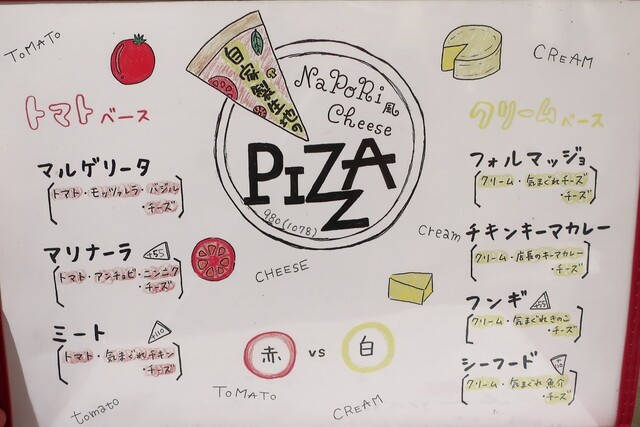 TOMATO
CREAM
自家製生地の
NaPoRi風
Cheese
PIZZA
980(1078)
トマトベース
マルゲリータ
トマト・モッツァレラ・バジル
・チーズ
マリナーラ
+55
トマト・アンチョビ・ニンニク
・チーズ
ミート
+110
トマト・気まぐれチキン
・チーズ
tomato
CHEESE
赤 vs 白
TOMATO
CREAM
クリームベース
フォルマッジョ
クリーム・気まぐれチーズ
・チーズ
Cream
チキンキーマカレー
クリーム・店長のキーマカレー
・チーズ
フンギ
+55
クリーム・気まぐれきのこ
・チーズ
シーフード
クリーム・気まぐれ魚介
・チーズ